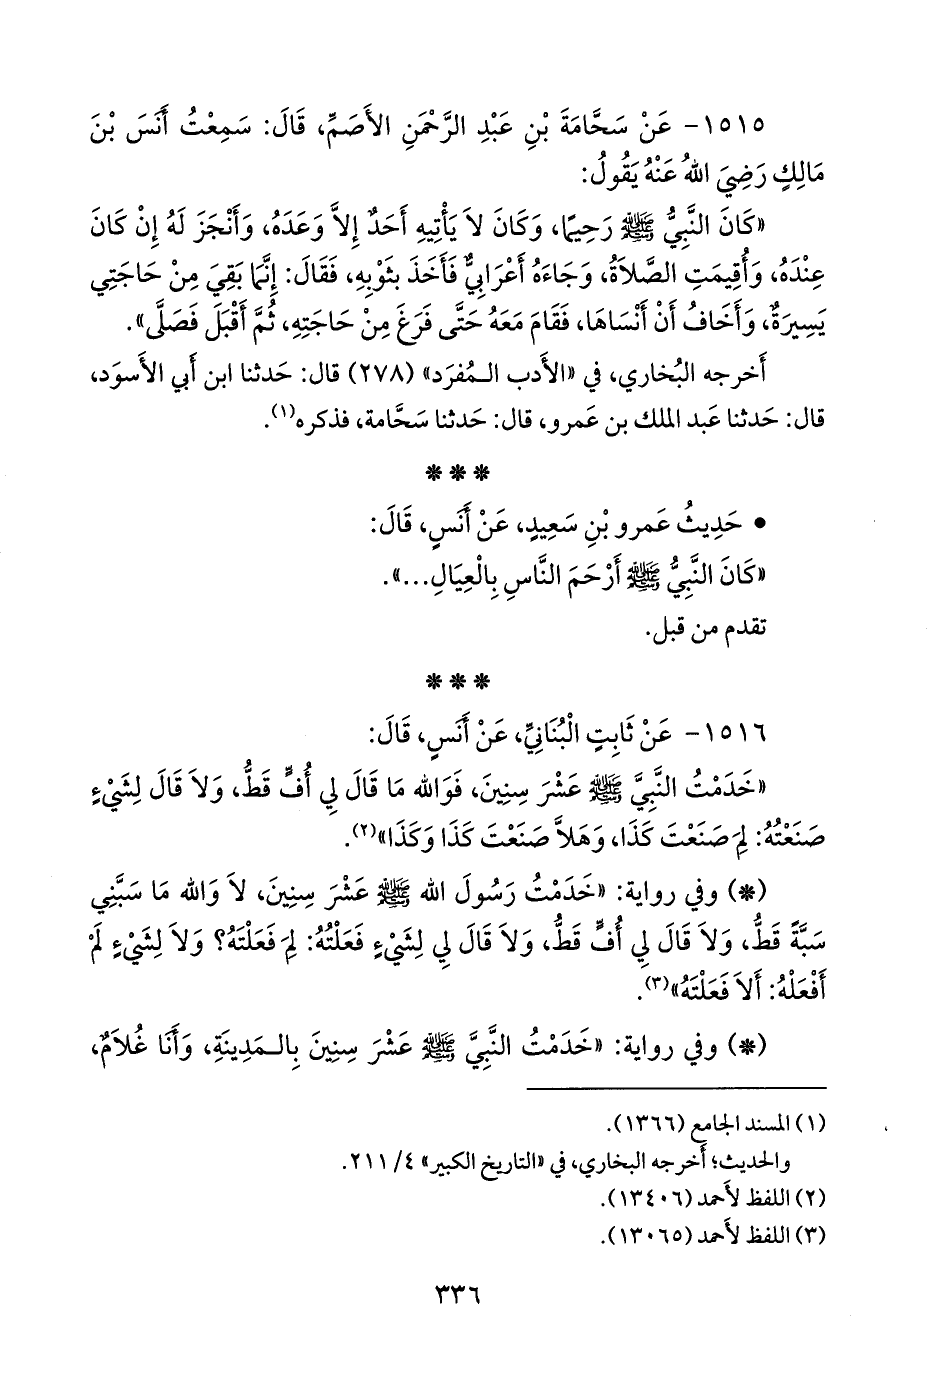 ١٥١٥- عَنْ سَحَّامَةَ بْنِ عَبْدِ الرَّحْمَنِ الأَصَمِّ، قَالَ: سَمِعْتُ أَنَسَ بْنَ
مَالِكٍ رَضِيَ اللهُ عَنْهُ يَقُولُ:
«كَانَ النَّبِيُّ ﷺ رَحِيمًا، وَكَانَ لاَ يَأْتِيهِ أَحَدٌ إِلاَّ وَعَدَهُ، وَأَنْجَزَ لَهُ إِنْ كَانَ
عِنْدَهُ، وَأُقِيمَتِ الصَّلاَةُ، وَجَاءَهُ أَعْرَابِيٌّ فَأَخَذَ بِثَوْبِهِ، فَقَالَ: إِنَّمَا بَقِيَ مِنْ حَاجَتِي
يَسِيرَةٌ، وَأَخَافُ أَنْ أَنْسَاهَا، فَقَامَ مَعَهُ حَتَّى فَرَغَ مِنْ حَاجَتِهِ، ثُمَّ أَقْبَلَ فَصَلَّى».
أَخرجه البُخاري، في «الأَدب الـمُفرَد» (٢٧٨) قال: حَدثنا ابن أَبي الأَسوَد،
قال: حَدثنا عَبد الملك بن عَمرو، قال: حَدثنا سَحَّامة، فذكره(١).
* * *
• حَدِيثُ عَمرو بْنِ سَعِيدٍ، عَنْ أَنَسٍ، قَالَ:
«كَانَ النَّبِيُّ ﷺ أَرْحَمَ النَّاسِ بِالْعِيَالِ...».
تقدم من قبل.
* * *
١٥١٦- عَنْ ثَابِتٍ الْبُنَانِيِّ، عَنْ أَنَسٍ، قَالَ:
«خَدَمْتُ النَّبِيَّ ﷺ عَشْرَ سِنِينَ، فَوَالله مَا قَالَ لِي أُفٍّ قَطُّ، وَلاَ قَالَ لِشَيْءٍ
صَنَعْتُهُ: لِمَ صَنَعْتَ كَذَا، وَهَلاَّ صَنَعْتَ كَذَا وَكَذَا»(٢).
(*) وفي رواية: «خَدَمْتُ رَسُولَ الله ﷺ عَشْرَ سِنِينَ، لاَ وَالله مَا سَبَّنِي
سَبَّةً قَطُّ، وَلاَ قَالَ لِي أُفٍّ قَطُّ، وَلاَ قَالَ لِي لِشَيْءٍ فَعَلْتُهُ: لِمَ فَعَلْتَهُ؟ وَلاَ لِشَيْءٍ لَمْ
أَفْعَلْهُ: أَلاَ فَعَلْتَهُ»(٣).
(*) وفي رواية: «خَدَمْتُ النَّبِيَّ ﷺ عَشْرَ سِنِينَ بِالـمَدِينَةِ، وَأَنَا غُلاَمٌ،
(١) المسند الجامع (١٣٦٦).
والحديث؛ أَخرجه البخاري، في «التاريخ الكبير» ٤/ ٢١١.
(٢) اللفظ لأَحمد (١٣٤٠٦).
(٣) اللفظ لأَحمد (١٣٠٦٥).
٣٣٦